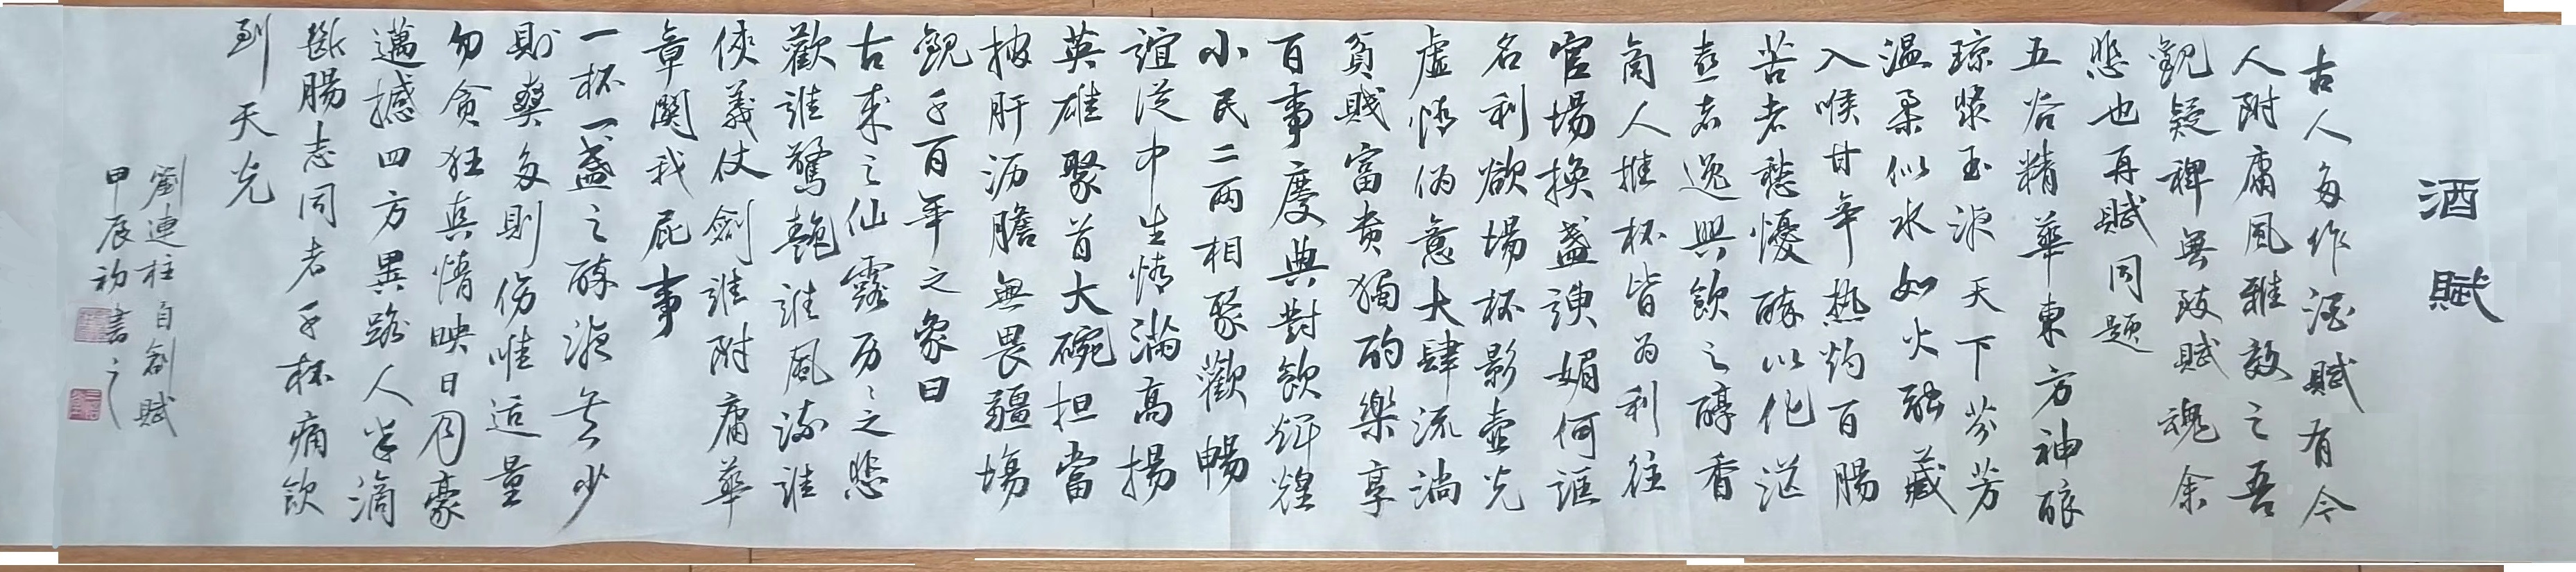 酒賦
古人多作酒賦有今
人附庸風雅效之吾
觀疑裨無致賦魂余
悲也再賦同题
五谷精華東方神酿
琼漿玉液天下芬芳
温柔似水如火融藏
入喉甘辛热灼百腸
苦者愁憂醉以化泄
喜者逸興飲之醇香
商人推杯皆为利往
官場換盞諛媚何誆
名利欲場杯影壶光
虚情伪意大肆流淌
貧賤富贵獨酌樂享
百事慶典對飲辉煌
小民二两相聚歡畅
誼從中生情滿高揚
英雄聚首大碗担當
披肝沥膽無畏疆場
觀千百年之象曰
古來之仙露历之之悲
歡誰驚艷誰風流誰
俠義仗劍誰附庸華
章関我屁事
一杯一盏之醉液無少
則爽多則伤唯适量
勿貪狂真情映日月豪
邁撼四方異路人半滴
断腸志同者千杯痛饮
到天光
劉連柱自創賦
甲辰初書之